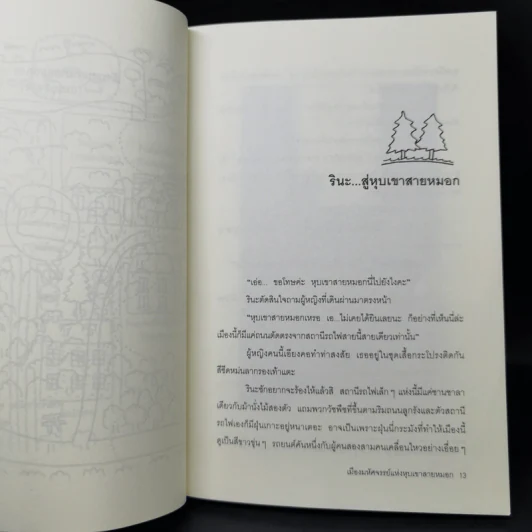 รินะ...สู่หุบเขาสายหมอก
"เอ่อ... ขอโทษค่ะ หุบเขาสายหมอกนี่ไปยังไงคะ"
รินะตัดสินใจถามผู้หญิงที่เดินผ่านมาตรงหน้า
"หุบเขาสายหมอกเหรอ เอ...ไม่เคยได้ยินเลยนะ ก็อย่างที่เห็นนี่ล่ะ
เมืองนี้ก็มีแค่ถนนตัดตรงจากสถานีรถไฟสายนี้สายเดียวเท่านั้น"
ผู้หญิงคนนี้เอียงคอทำท่าสงสัย เธออยู่ในชุดเสื้อกระโปรงติดกัน
สีซีดหม่นลากรองเท้าแตะ
รินะชักอยากจะร้องไห้แล้วสิ สถานีรถไฟเล็กๆ แห่งนี้มีแค่ชานชาลา
เดียวกับม้านั่งไม้สองตัว แถมพวกวัชพืชที่ขึ้นตามริมถนนลูกรังและตัวสถานี
รถไฟเองก็มีฝุ่นเกาะอยู่หนาเตอะ อาจเป็นเพราะฝุ่นนี่กระมังที่ทำให้เมืองนี้
ดูเป็นสีขาวขุ่นๆ รถยนต์คันหนึ่งกับผู้คนสองสามคนเคลื่อนไหวอย่างเอื่อยๆ
เมืองมหัศจรรย์แห่งหุบเขาสายหมอก 13